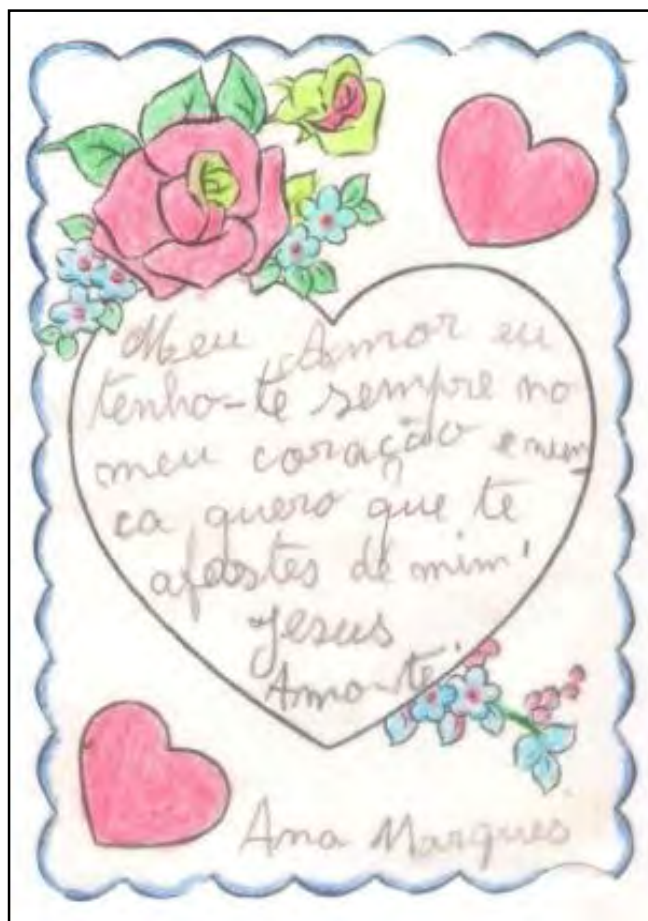 Meu Amor eu
tenho-te sempre no
meu coração e num
ca quero que te
afostes de mim!
Jesus
Amo-te!
Ana Marques